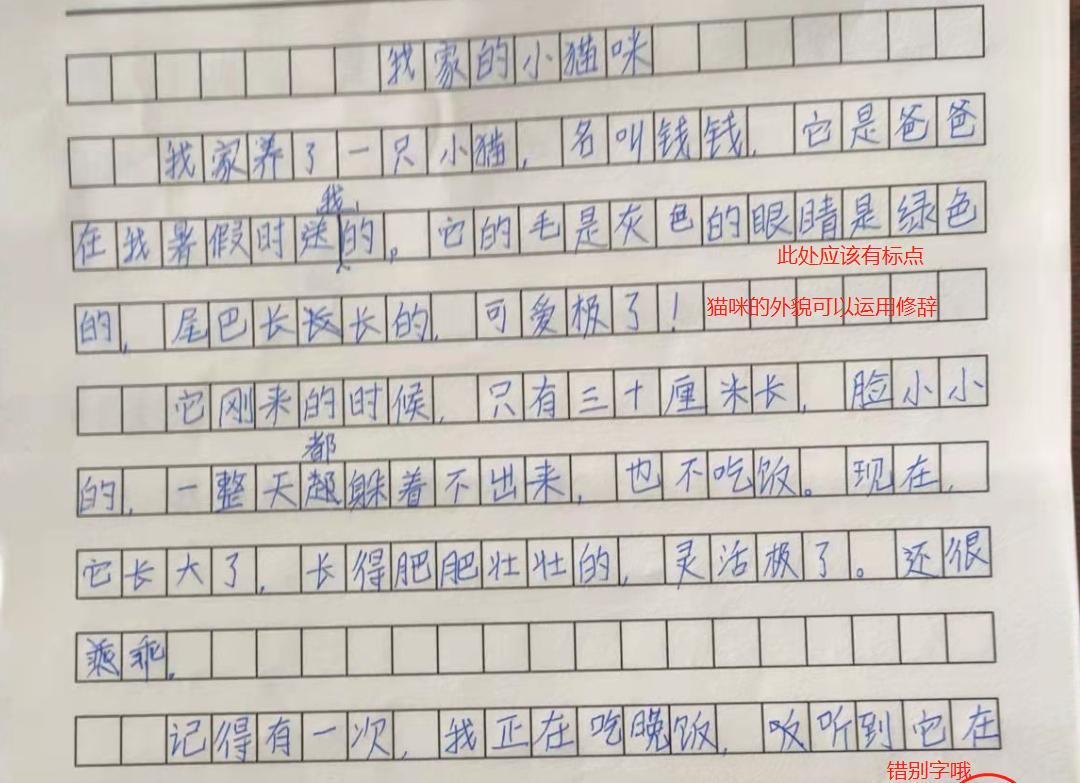 我家的小猫咪
我家养了一只小猫，名叫钱钱，它是爸爸
我
在我暑假时送的。它的毛是灰色的眼睛是绿色
此处应该有标点
的，尾巴长长的，可爱极了！
猫咪的外貌可以运用修辞
它刚来的时候，只有三十厘米长，脸小小
都
的，一整天躲着不出来，也不吃饭。现在，
它长大了，长得肥肥壮壮的，灵活极了。还很
乖，
记得有一次，我正在吃晚饭，听到它在
错别字哦